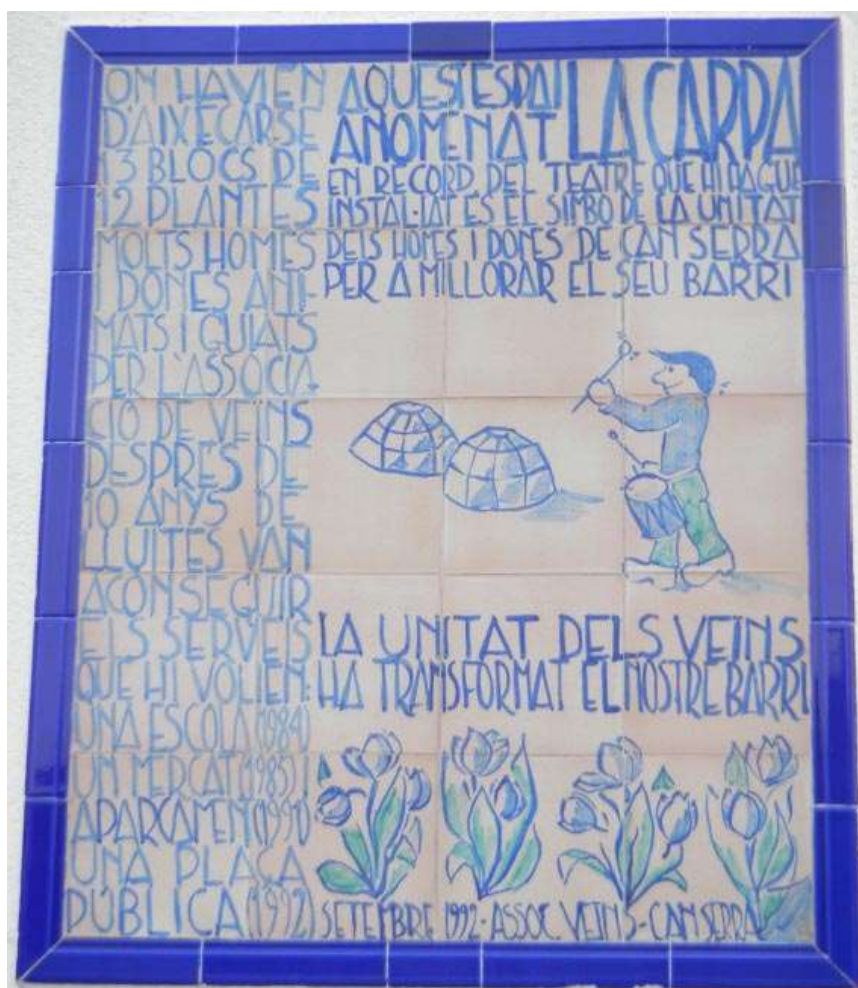 ON HAVIEN
D'AIXECARSE
13 BLOCS DE
12 PLANTES
MOLTS HOMES
I DONES ANI-
MATS I GUIATS
PER L'ASSOCIA-
CIÓ DE VEÏNS
DESPRÉS DE
10 ANYS DE
LLUITES VAN
ACONSEGUIR
ELS SERVEIS
QUE HI VOLIEN:
UNA ESCOLA (1984)
UN MERCAT (1985) I
APARCAMENT (1991)
UNA PLAÇA
PÚBLICA (1992)
AQUEST ESPAI
ANOMENAT LA CARPA
EN RECORD DEL TEATRE QUE HI HAGUÉ
INSTAL·LAT ES EL SIMBO DE LA UNITAT
DELS HOMES I DONES DE CAN SERRA
PER A MILLORAR EL SEU BARRI
LA UNITAT DELS VEINS
HA TRANSFORMAT EL NOSTRE BARRI
SETEMBRE 1992 · ASSOC. VEÏNS - CAN SERRA